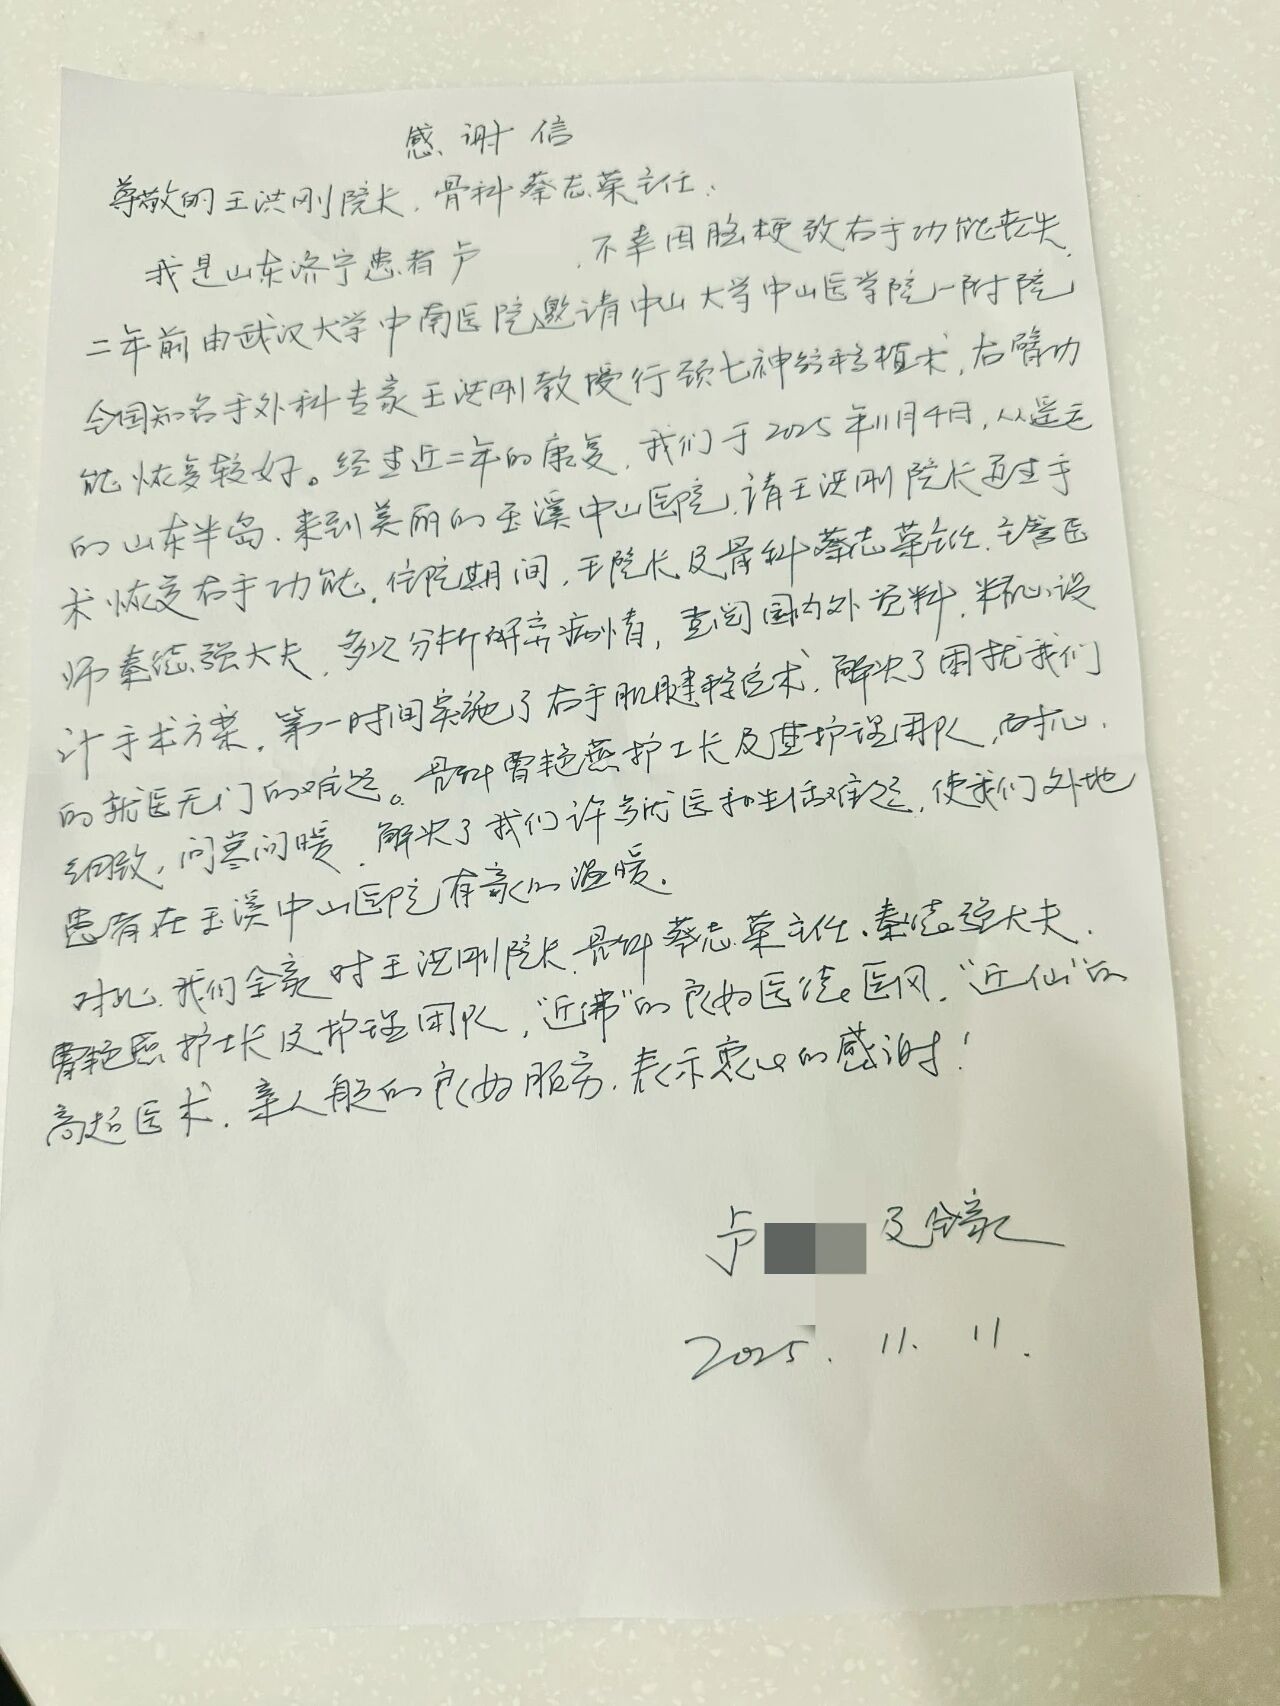 感谢信
尊敬的王洪刚院长、骨科蔡志荣主任：
我是山东济宁患者卢 ，不幸因脑梗致右手功能丧失，
二年前由武汉大学中南医院邀请中山大学中山医学院一附院
全国知名手外科专家王洪刚教授行颈七神经移植术，右臂功
能恢复较好。经过近二年的康复，我们于2025年11月4日，从遥远
的山东半岛，来到美丽的玉溪中山医院，请王洪刚院长再做手
术恢复右手功能。住院期间，王院长及骨科蔡志荣主任、主管医
师秦德强大夫，多次分析研究病情，查阅国内外资料，精心设
计手术方案，第一时间实施了右手肌腱移位术，解决了困扰我们
的就医无门的难题。骨科曹艳燕护士长及其护理团队，耐心、
细致，问寒问暖，解决了我们许多就医和生活难题，使我们外地
患者在玉溪中山医院有家的温暖。
对此，我们全家对王洪刚院长、骨科蔡志荣主任、秦德强大夫、
曹艳燕护士长及护理团队，“近佛”的良好医德医风，“近仙”的
高超医术，亲人般的良好服务，表示衷心的感谢！
卢 及全家
2025.11.11.